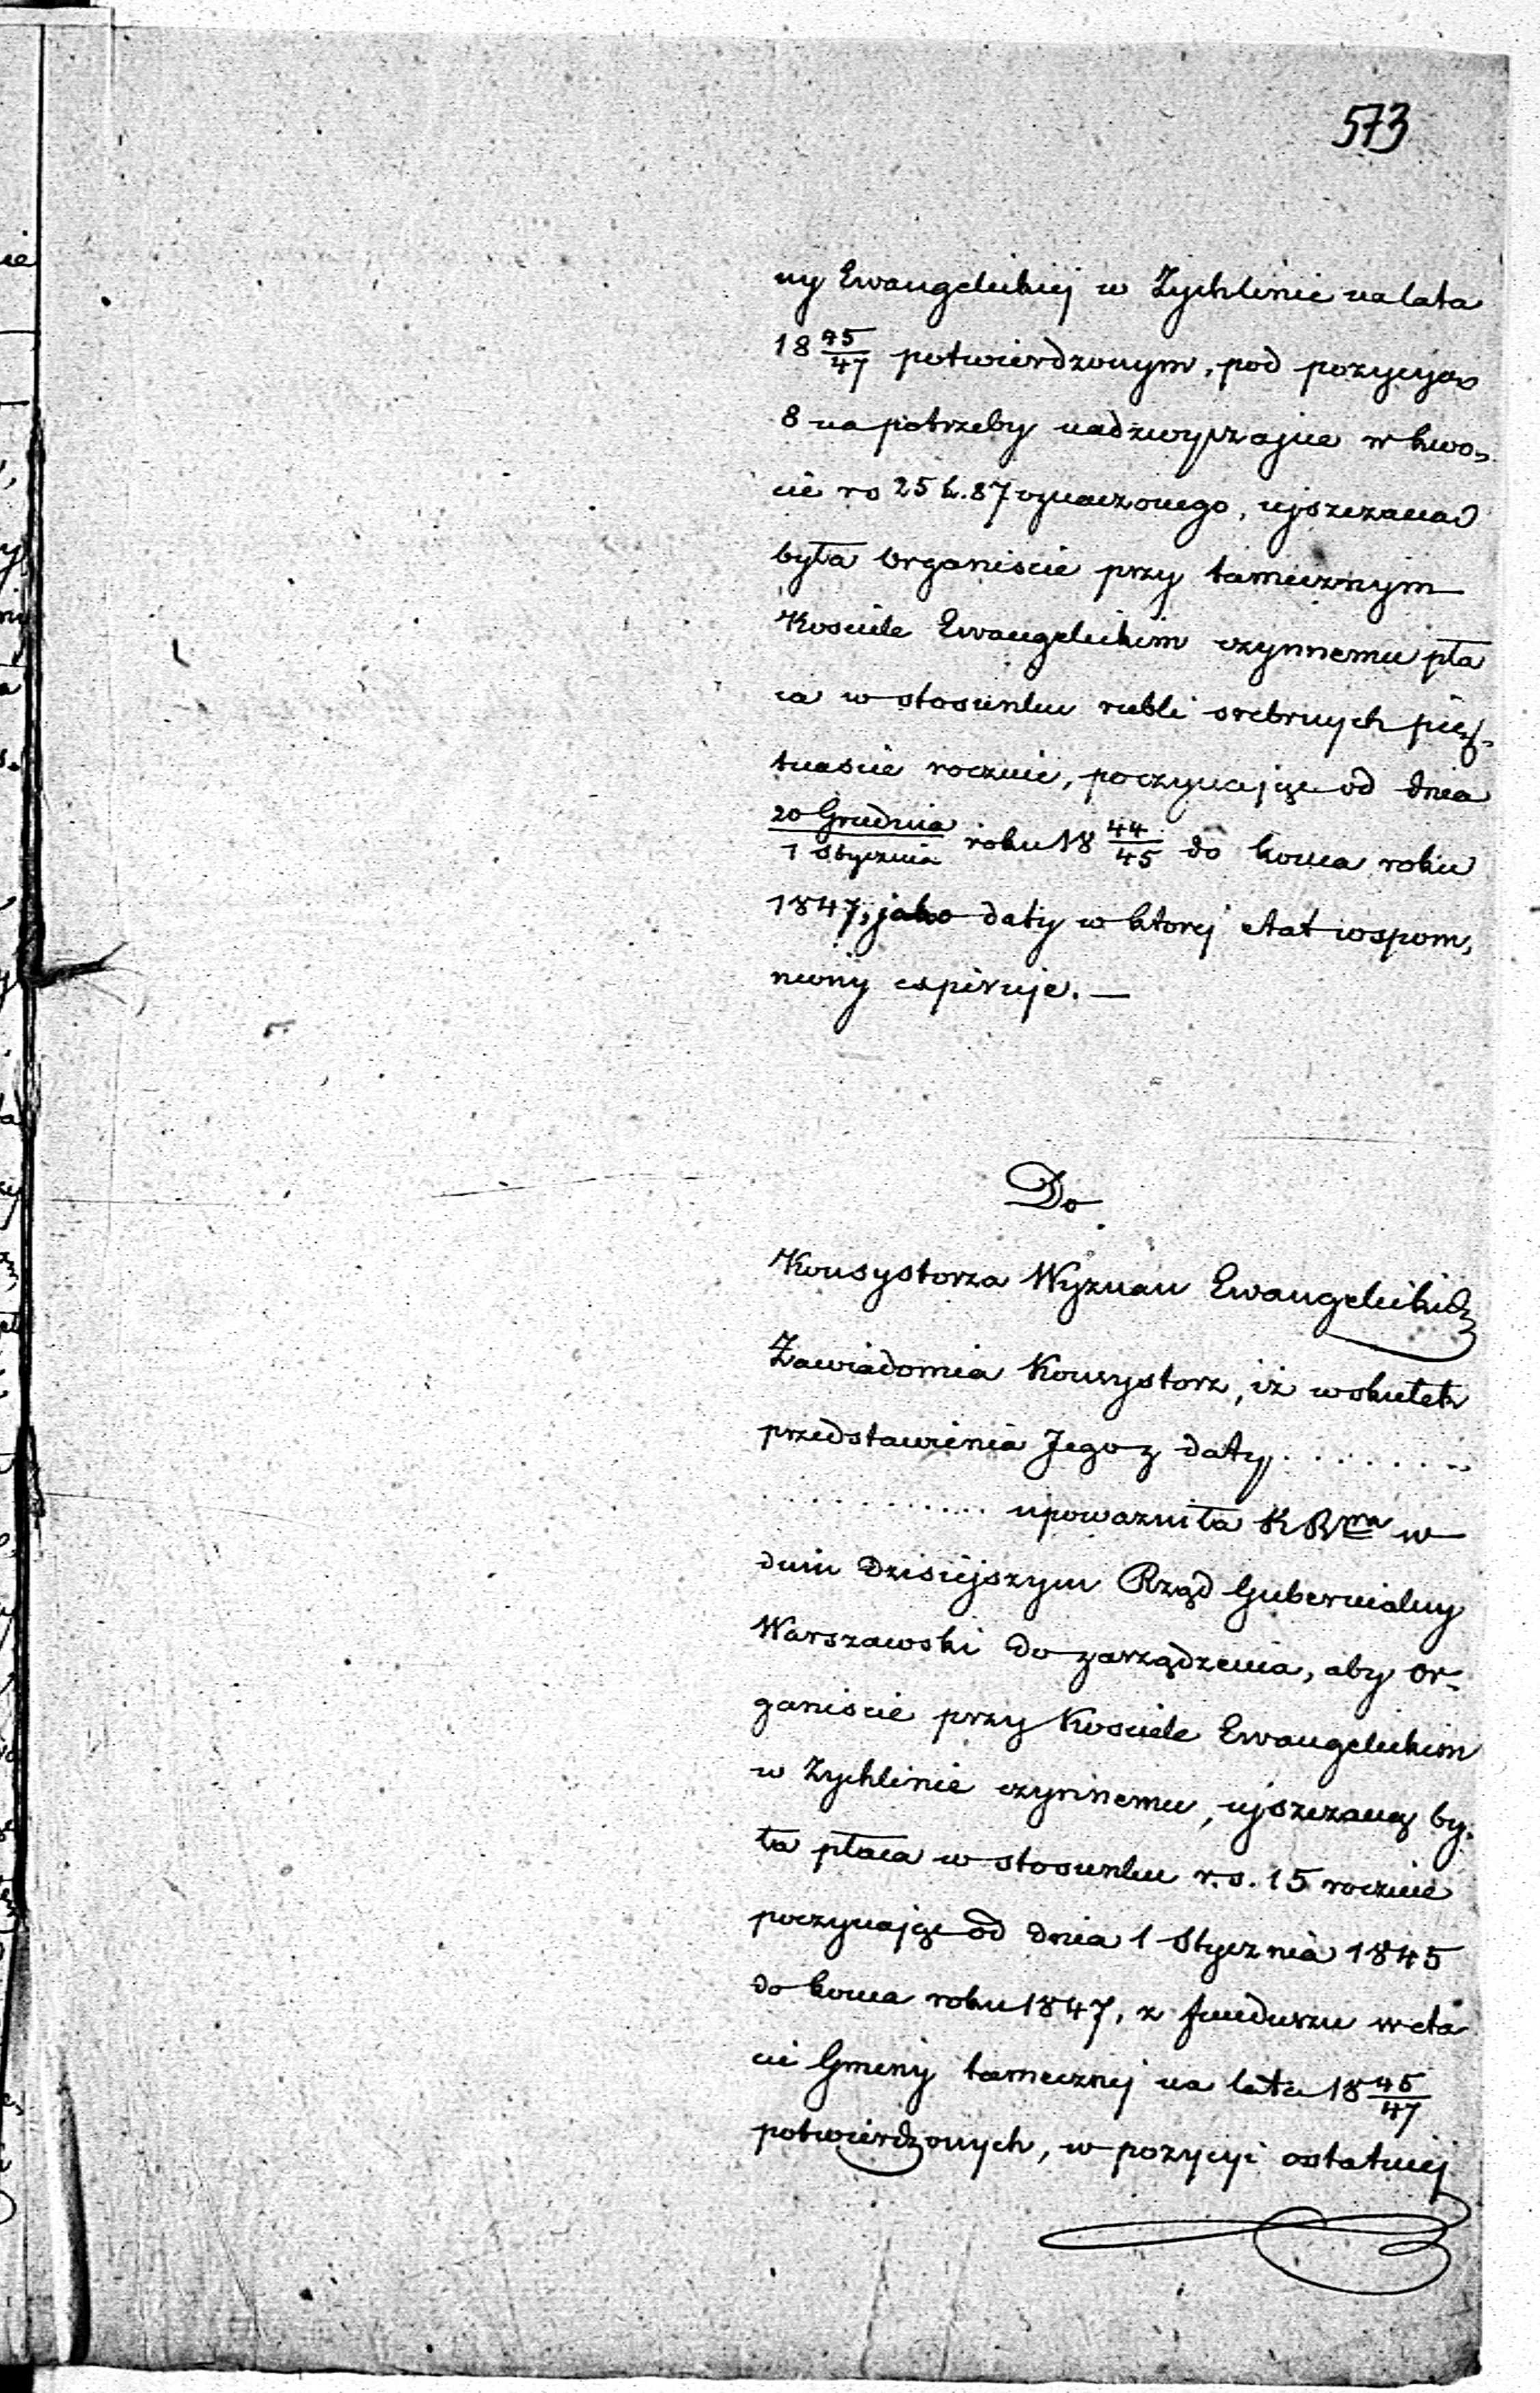 573
ny Ewangelickiej w Zychlinie na lata
18 45/47 potwierdzonym, pod pozycyą
8 na potrzeby nadzwyczajne w kwo-
cie rs 25 k. 87 oznaczonego, uiszczana
była Organiście przy tamecznym
Kosciele Ewangelickim czynnemu pła
ca w stosunku rubli srebrnych pięt-
nascie rocznie, poczynając od dnia
20 Grudnia/1 Stycznia roku 18 44/45 do konca roku
1847, jako daty w ktorej etat wspom,
niony expiruje. —
Do
Konsystorza Wyznan Ewangelickich
Zawiadomia Konsystorz, iż wskutek
przedstawienia Jego z daty . . . . . . . .
. . . . . . . . . . . . upowazniła K R wa w
dniu dzisiejszym Rząd Gubernialny
Warszawski do zarządzenia, aby Or-
ganiscie przy Kosciele Ewangelickim
w Zychlinie czynnemu, uiszczaną by-
ła płaca w stosunku r.s. 15 rocznie
poczynając od dnia 1 Stycznia 1845
do konca roku 1847, z funduszu w eta
cie Gminy tamecznej na lata 18 45/47
potwierdzonych, w pozycyi ostatniej